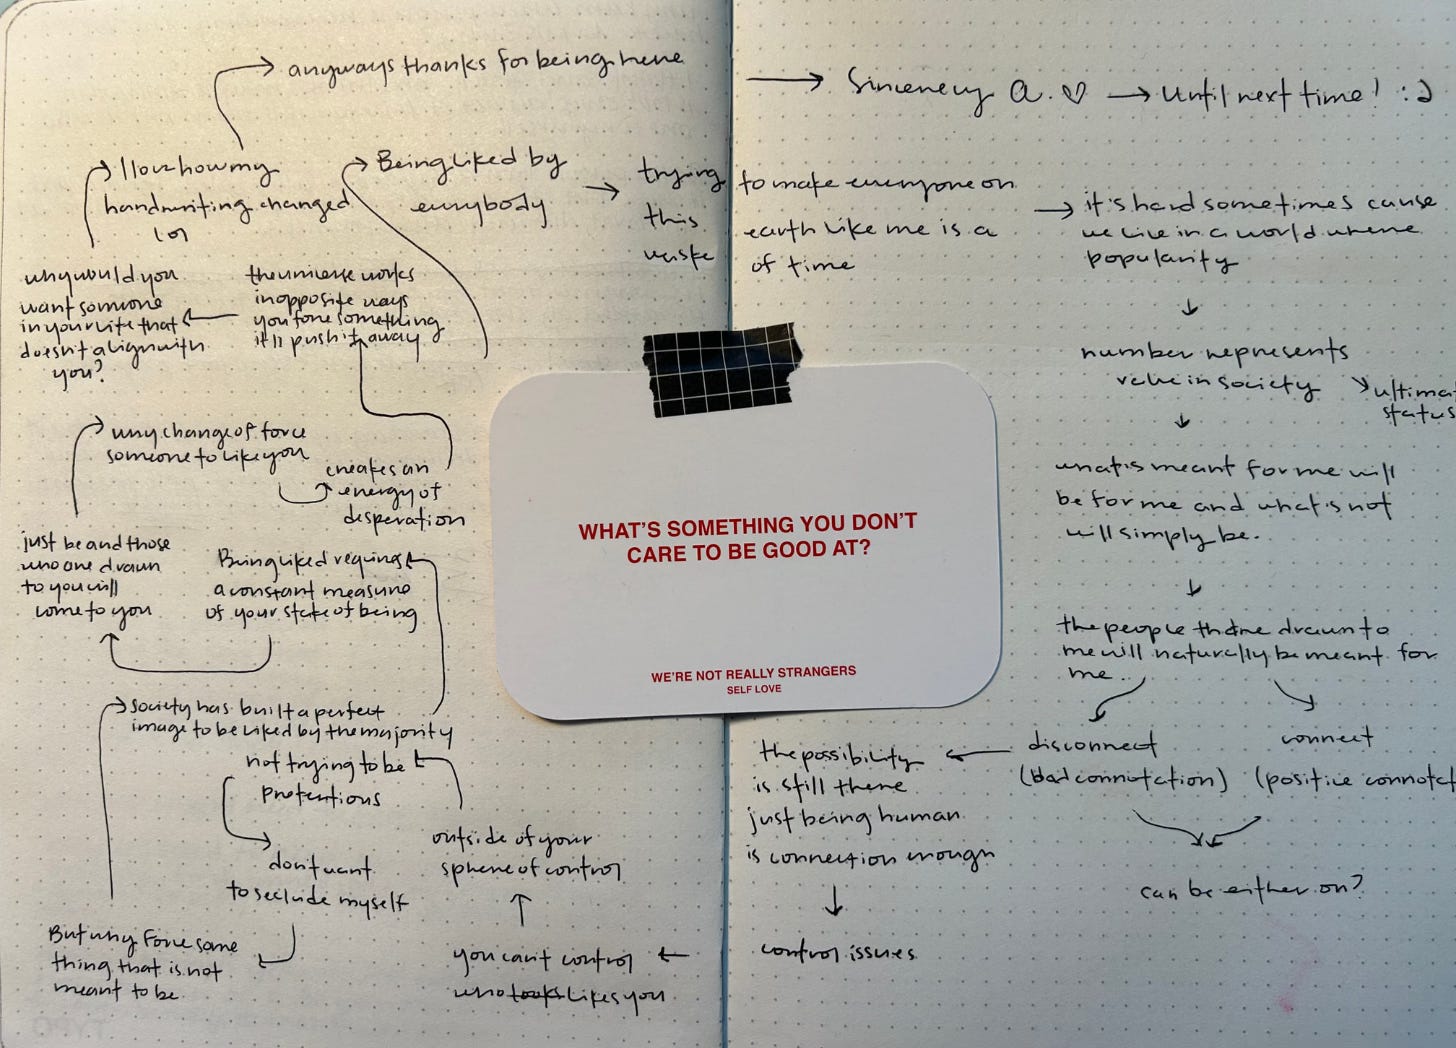 anyways thanks for being here
Sincerely A. ♡ → Until next time! :)
I love how my
handwriting changed
lol
Being liked by
everybody
trying to make everyone on
this earth like me is a
waste of time
it's hard sometimes cause
we live in a world where
popularity
number represents
value in society
ultimat
status
what is meant for me will
be for me and what is not
will simply be.
the people that are drawn to
me will naturally be meant for
me..
disconnect
(bad connotation)
connect
(positive connotat
can be either or?
the possibility
is still there
just being human
is connection enough
control issues
you can't control
who looks likes you
outside of your
sphere of control
not trying to be
pretentious
don't want
to seclude myself
But why force some
thing that is not
meant to be
Society has built a perfect
image to be liked by the majority
Being liked requires
a constant measure
of your state of being
just be and those
who are drawn
to you will
come to you
why change of force
someone to like you
creates an
energy of
desperation
the universe works
in opposite ways
you force something
it'll push it away
why would you
want someone
in your life that
doesn't align with
you?
WHAT'S SOMETHING YOU DON'T
CARE TO BE GOOD AT?
WE'RE NOT REALLY STRANGERS
SELF LOVE
TYPO